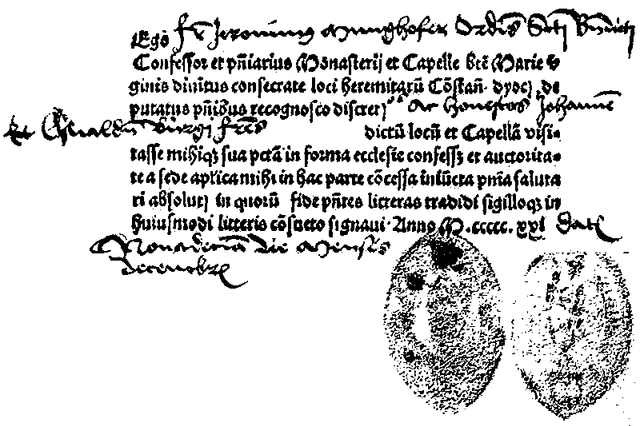 Ego fr Jeronimus Munghofer Ordis Scti
Confessor et pñiarius Monasterij et Capelle btē Marie v
ginis diuinitus consecrate loci heremitarū Cōstañ. dyocꝭ. de
putatus pñibus recognosco discretꝭ os Ac honestos Johannē
et Oswaldū Bürgi frēs dictū locū et Capellā visi-
tasse mihiqꝫ sua pctā in forma ecclesie confessꝫ et auctorita-
te a sede aplica mihi in hac parte cōcessa iniūcta pñia saluta
ri absoluꝭ in quorū fide pñtes litteras tradidi sigilloqꝫ in
huiusmodi litteris cōsueto signaui. Anno M.ccccc.xxI Datū
Nonadecima Die Mensis
Decembrꝭ